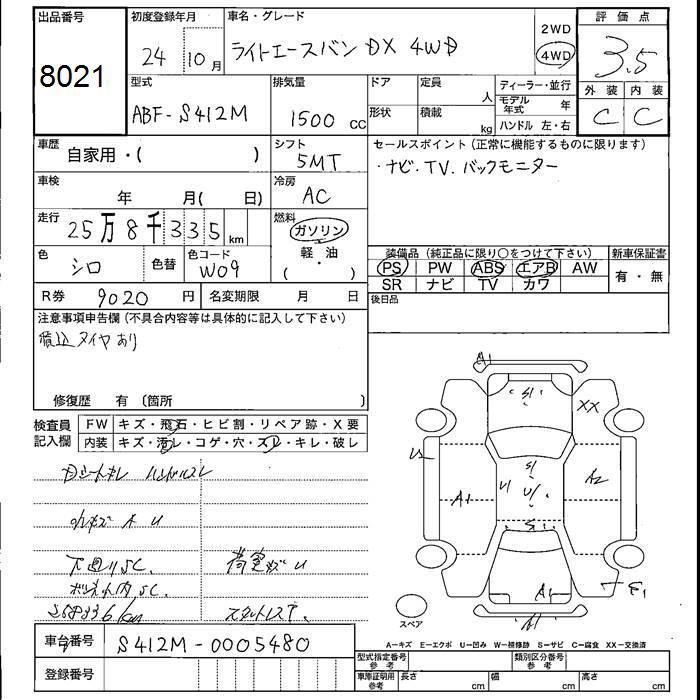 出品番号 初度登録年月 車名・グレード 評価点
8021 24 10月 ライトエースバン DX 4WD 2WD 4WD 3.5
型式 排気量 ドア 定員 人 ディーラー・並行 外装 内装
ABF-S412M 1500 CC 形状 積載 kg モデル年式 年 C C
ハンドル 左・右
車歴 自家用・( ) シフト 5MT セールスポイント (正常に機能するものに限ります)
・ナビ・TV. バックモニター
車検 年 月( 日) 冷房 AC
走行 25万8千335km 燃料 ガソリン
軽・油
( ・ )
色 シロ 色替 色コード W09 装備品 (純正品に限り○をつけて下さい) 新車保証書
PS PW ABS エアB AW 有・無
SR ナビ TV カワ
R券 9020円 名変期限 月 日 後日品
注意事項申告欄 (不具合内容等は具体的に記入して下さい)
積込タイヤあり
修復歴 有 (箇所 )
検査員記入欄 FW キズ・飛石・ヒビ割・リペア跡・X要
内装 キズ・汚レ・コゲ・穴・スレ・キレ・破レ
Dシートキレ ハンドルスレ
小キズ A U
下廻りSC. 荷室キズU
ボンネット内SC.
258336km スタットレスT.
A1
S1
XX
U S1 A2
A1 U U
S1
A1
A1
スペア
A-キズ E-エクボ U-凹み W-補修跡 S-サビ C-腐食 XX-交換済
車台番号 S412M-0005480
型式指定番号 参考 類別区分番号 参考
登録番号 車庫証明用 参考 長さ cm 幅 cm 高さ cm